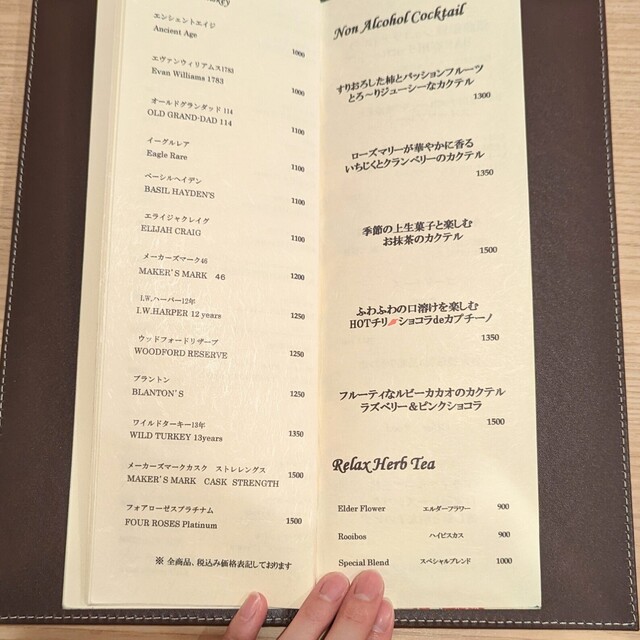 エンシェントエイジ
Ancient Age 1000
エヴァンウィリアムス1783
Evan Williams 1783 1000
オールドグランダッド 114
OLD GRAND-DAD 114 1100
イーグルレア
Eagle Rare 1100
ベーシルヘイデン
BASIL HAYDEN'S 1100
エライジャクレイグ
ELIJAH CRAIG 1100
メーカーズマーク46
MAKER'S MARK 46 1200
I.W.ハーパー12年
I.W.HARPER 12 years 1250
ウッドフォードリザーブ
WOODFORD RESERVE 1250
ブラントン
BLANTON'S 1250
ワイルドターキー13年
WILD TURKEY 13years 1350
メーカーズマークカスク ストレレングス
MAKER'S MARK CASK STRENGTH 1500
フォアローゼスプラチナム
FOUR ROSES Platinum 1500
※ 全商品、税込み価格表記しております
Non Alcohol Cocktail
すりおろした柿とパッションフルーツ
とろ～りジューシーなカクテル
1300
ローズマリーが華やかに香る
いちじくとクランベリーのカクテル
1350
季節の上生菓子と楽しむ
お抹茶のカクテル
1500
ふわふわの口溶けを楽しむ
HOTチリ🌶ショコラdeカプチーノ
1350
フルーティなルビーカカオのカクテル
ラズベリー＆ピンクショコラ
1500
Relax Herb Tea
Elder Flower エルダーフラワー 900
Rooibos ハイビスカス 900
Special Blend スペシャルブレンド 1000